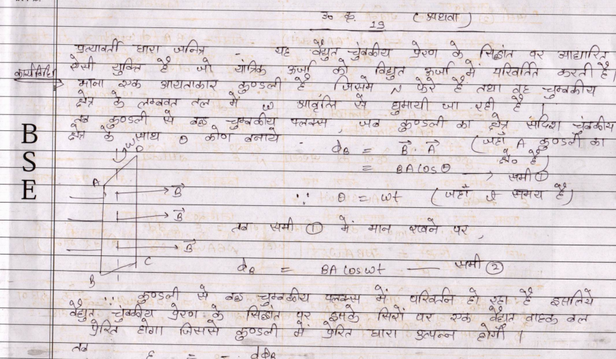 उ० क्र० 19 (अथवा)
प्रत्यावर्ती धारा जनित्र - यह वैद्युत चुम्बकीय प्रेरण के सिद्धांत पर आधारित
ऐसी युक्ति है जो यांत्रिक ऊर्जा को विद्युत ऊर्जा में परिवर्तित करती है
कार्यविधि माना एक आयताकार कुण्डली है जिसमें N फेरे है तथा वह चुम्बकीय
क्षेत्र के लम्बवत तल में ω आवृत्ति से घुमायी जा रही है।
तब कुण्डली से बद्ध चुम्बकीय फ्लक्स, जब कुण्डली का क्षेत्र सदिश चुंबकीय
क्षेत्र के साथ θ कोण बनाये
ϕB = B⃗ · A⃗ (जहाँ A कुण्डली का क्षे० है)
= BA cos θ — समी ①
∵ θ = ωt (जहाँ t समय है)
तब समी ① में मान रखने पर,
ϕB = BA cos ωt — समी ②
∵ कुण्डली से बद्ध चुम्बकीय फ्लक्स में परिवर्तन हो रहा है इसलिये
वैद्युत चुंबकीय प्रेरण के सिद्धांत पर इसके सिरों पर एक वैद्युत वाहक बल
प्रेरित होगा जिससे कुण्डली में प्रेरित धारा उत्पन्न होगी।
तब
BSE
ω
A
D
B⃗
B⃗
B⃗
C
B